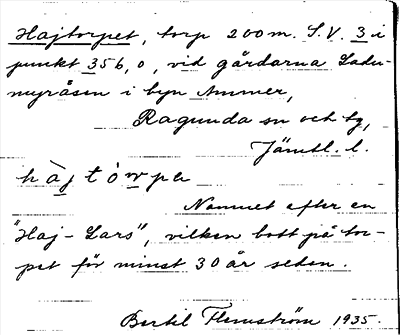 Hajtorpet, torp 200 m. S.V. 3 i
punkt 356,0, vid gårdarna Ladu-
myråsen i byn Ammer,
Ragunda sn och tg,
Jämtl. l.
hàjtòrpə
Namnet efter en
"Haj-Lars", vilken bott på tor-
pet för minst 30 år seden.
Bertil Flemström 1935.